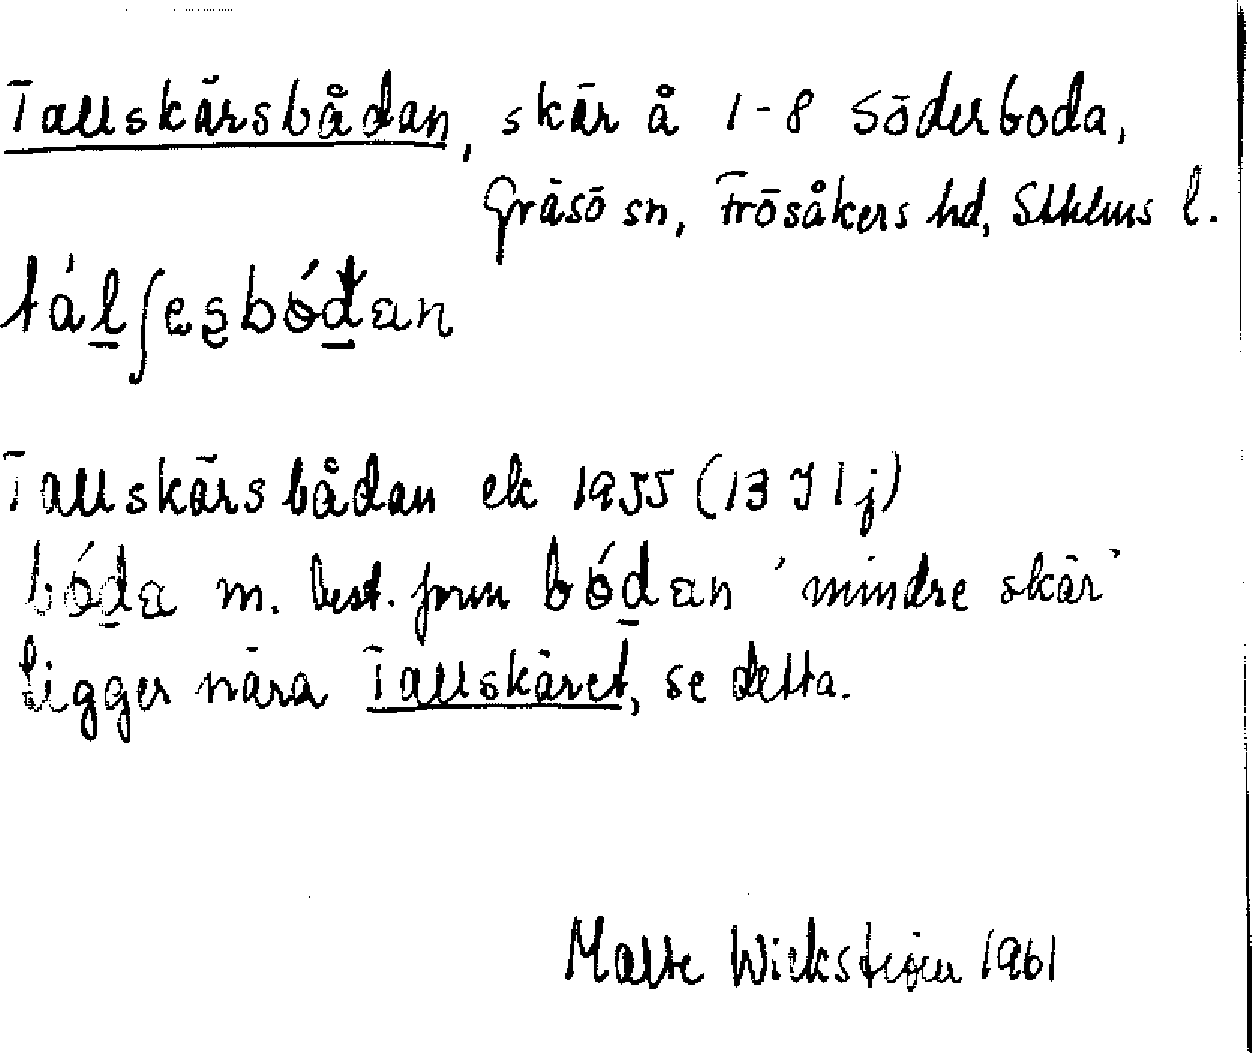 Tallskärsbådan, skär å 1-8 Söderboda,
Gräsö sn, Frösåkers hd, Sthlms l.
tálʃesbóđan
Tallskärsbådan ek 1955 (13 I 1 j)
bóda m. best. form bódan 'mindre skär'
Ligger nära Tallskäret, se detta.
Malte Wickström 1961